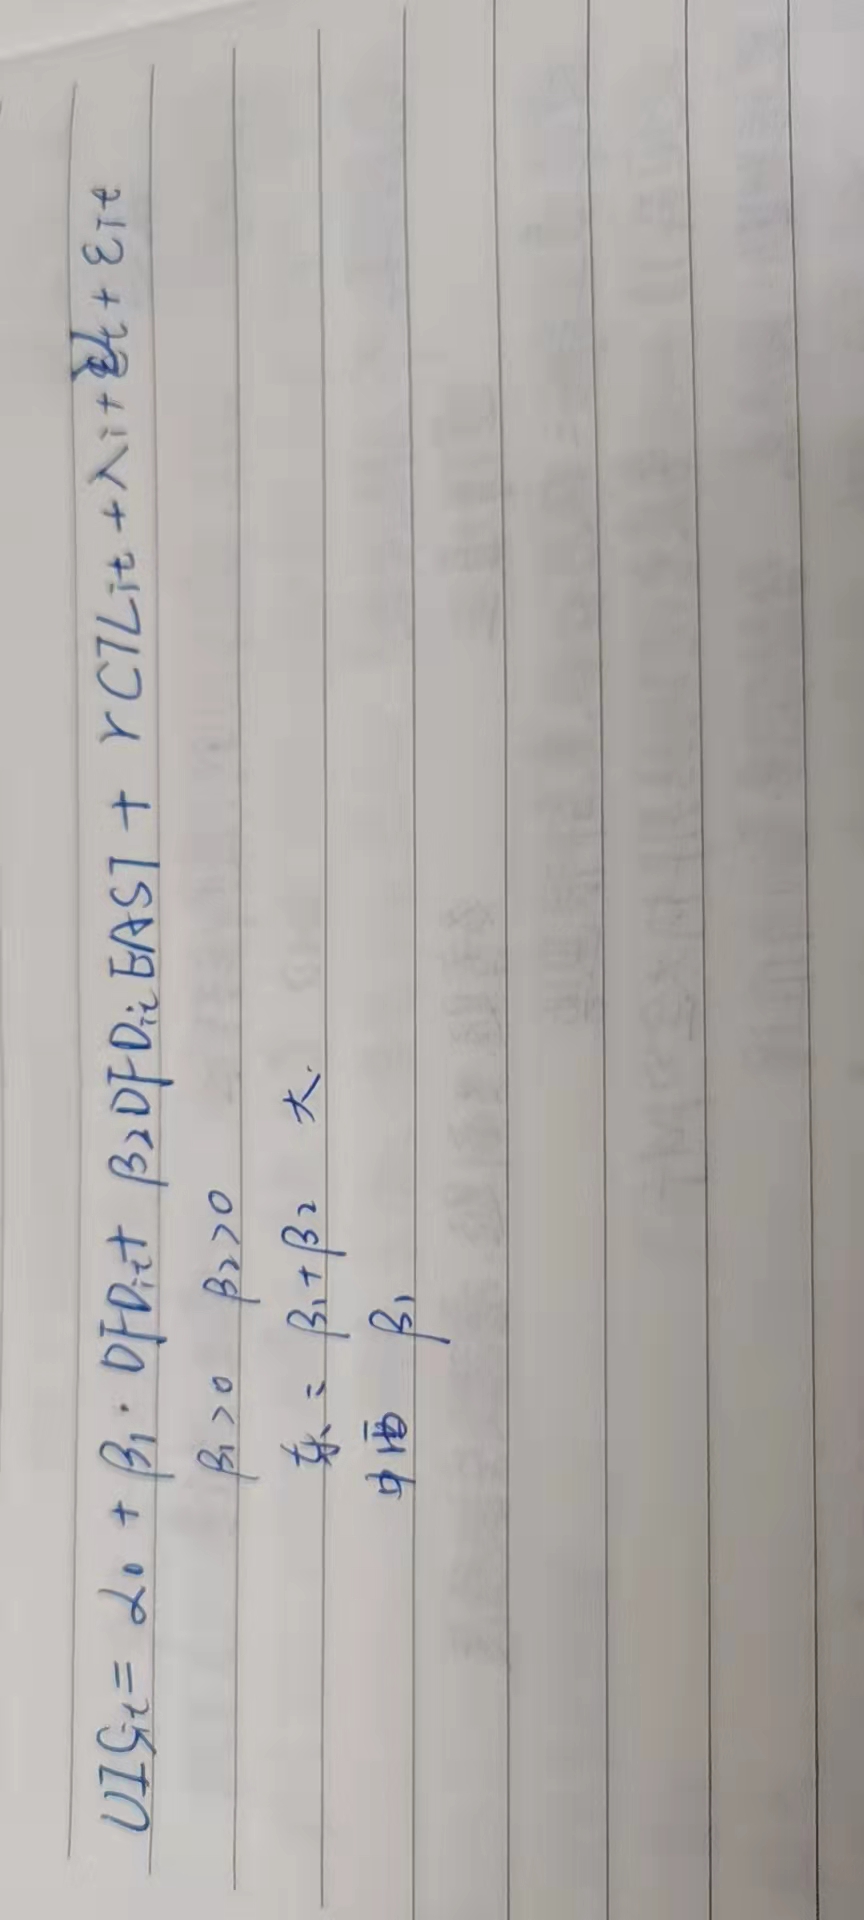 UIGit = α0 + β1 · DFDit + β2DFDit EAST + γCTLit + λi + t + εit
β1>0 β2>0
东 = β1+β2 大.
中西 β1